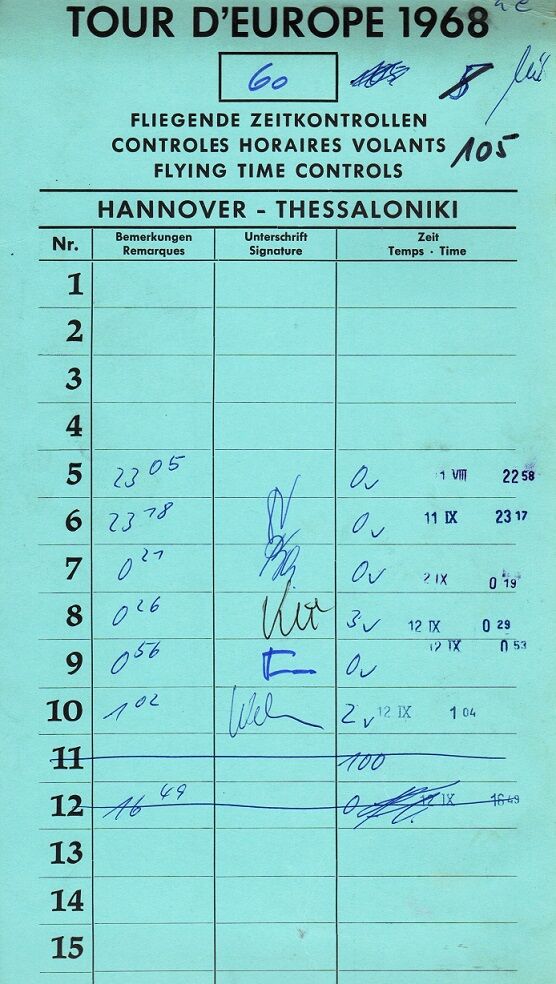 TOUR D'EUROPE 1968
60
FLIEGENDE ZEITKONTROLLEN
CONTROLES HORAIRES VOLANTS 105
FLYING TIME CONTROLS
HANNOVER - THESSALONIKI
Nr. Bemerkungen Remarques Unterschrift Signature Zeit Temps · Time
1
2
3
4
5 23 05 0 VIII 22 58
6 23 18 0 11 IX 23 17
7 0 21 0 2 IX 0 19
8 0 26 3 12 IX 0 29
9 0 56 0 12 IX 0 53
10 1 02 2 12 IX 1 04
11 100
12 16 49 0 12 IX 16 49
13
14
15